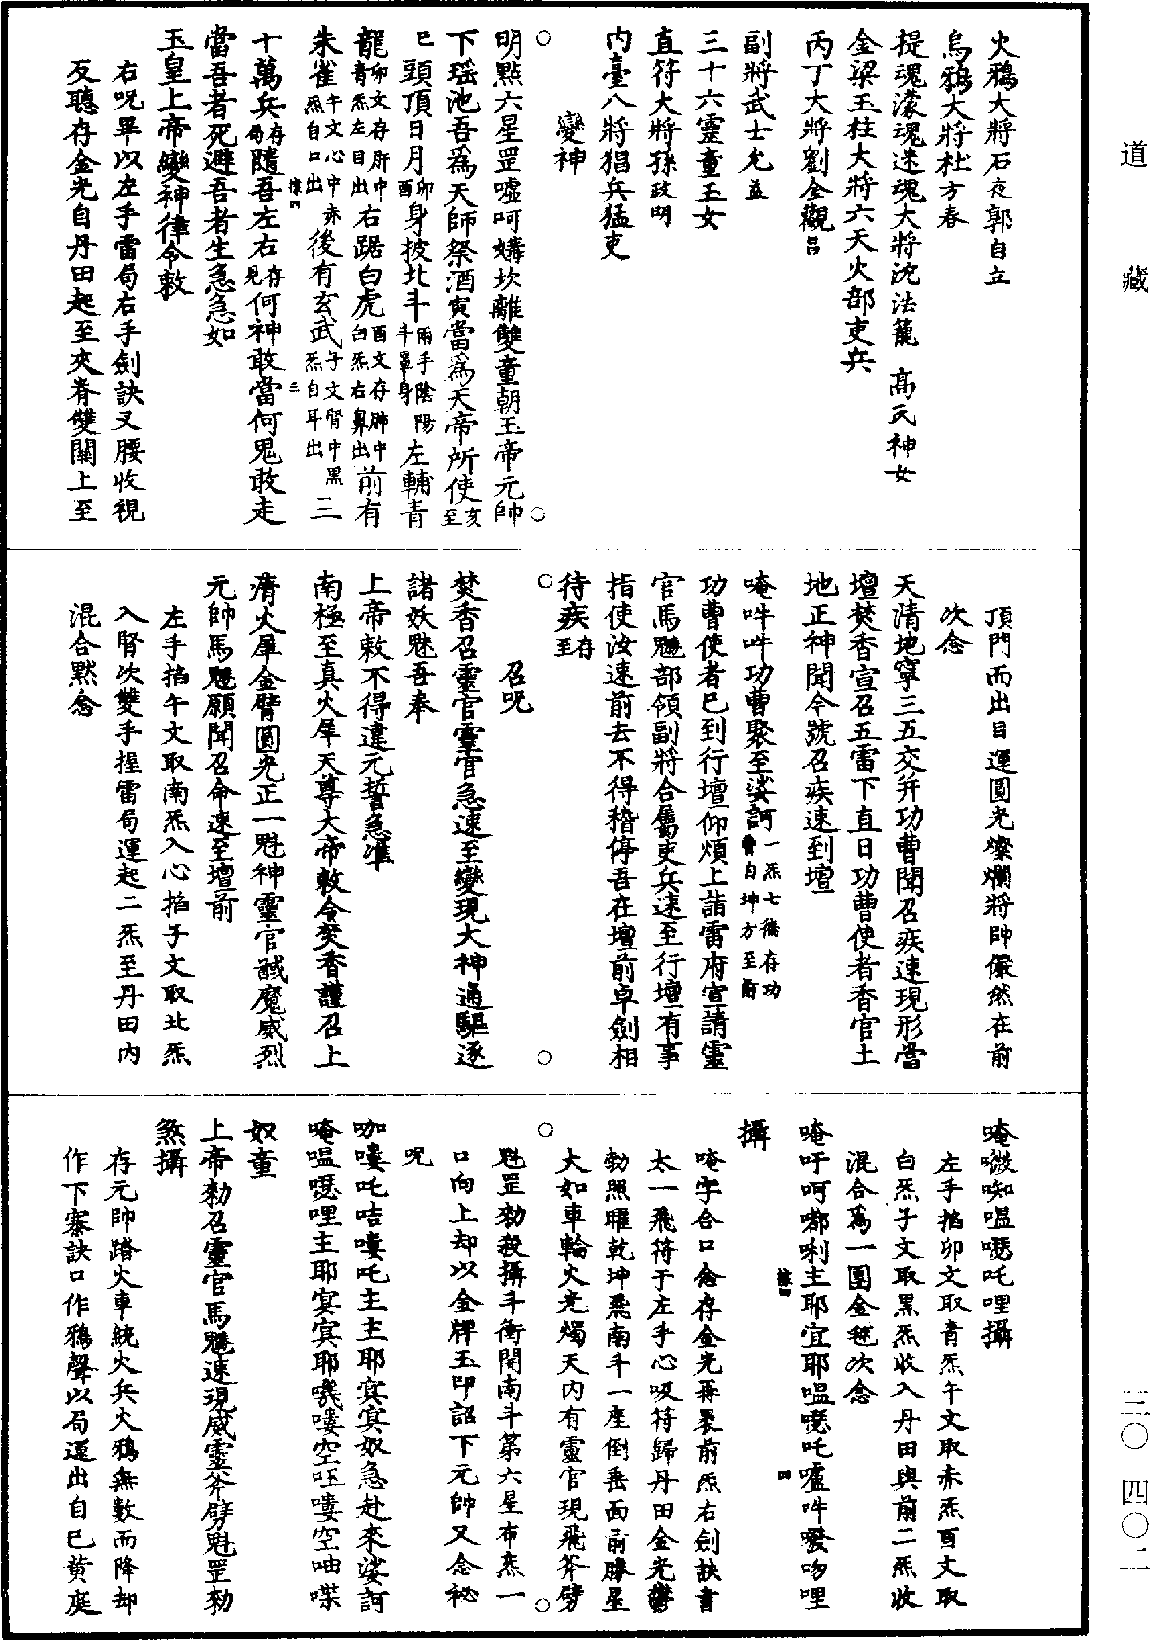 火鴉大將石夜郭自立
烏鴉大將杜方春
提魂濛魂迷魂大將沈法籠 高氏神女
金梁玉柱大將六天火部吏兵
丙丁大將劉全觀呂
副將武士允益
三十六靈童玉女
直符大將孫政明
内臺八將猖兵猛吏
變神
明點六星罡噓呵媾坎離雙童朝玉帝元帥
下瑶池吾爲天師祭酒寅當爲天帝所使亥至
巳頭頂日月卯酉身披北斗兩手陰陽斗罩身左輔青
龍卯文存肝中青炁左目出右踞白虎酉文存肺中白炁右鼻出前有
朱雀午文心中赤炁自口出後有玄武子文腎中黑炁自耳出三
十萬兵存局隨吾左右存見何神敢當何鬼敢走
當吾者死避吾者生急急如
玉皇上帝變神律令敕
右呪畢以左手雷局右手劍訣叉腰收視
反聽存金光自丹田起至夾脊雙關上至
頂門而出目運圓光燦爛將帥儼然在前
次念
天清地寧三五交并功曹聞召疾速現形當
壇焚香宣召五雷下直日功曹使者香官土
地正神聞今號召疾速到壇
唵吽吽功曹聚至娑訶一炁七徧存功曹自坤方至前
功曹使者已到行壇仰煩上詣雷府宣請靈
官馬魈部領副將合屬吏兵速至行壇有事
指使汝速前去不得稽停吾在壇前卓劍相
待疾存至
召呪
焚香召靈官靈官急速至變現大神通驅逐
諸妖魅吾奉
上帝敕不得違元誓急準
南極至真火犀天尊大帝敕令焚香謹召上
清火犀金臂圓光正一魁神靈官馘魔威烈
元帥馬魈願聞召命速至壇前
左手掐午文取南炁入心掐子文取北炁
入腎次雙手握雷局運起二炁至丹田内
混合默念
唵微𠲿嗢㘁吒哩攝
左手掐卯文取青炁午文取赤炁酉文取
白炁子文取黑炁收入丹田與前二炁收
混合爲一團金毬次念
唵吁呵嘟唎主耶宜耶嗢㘁吒嚧吽發吻哩
攝
唵字合口念存金光再聚前炁右劍訣書
太一飛符于左手心吸符歸丹田金光
勃照曜乾坤飛南斗一座倒垂面前勝星
大如車輪火光燭天内有靈官現飛斧劈
魁罡勑殺攝斗衝開南斗第六星布炁一
口向上却以金牌玉印詔下元帥又念祕
呪
咖嘍吒咭嘍吒主主耶㝠㝠奴急赴來娑訶
唵嗢㘁哩主耶㝠㝠耶嘰嘍空呧嘍空呦喋
奴童
上帝勑召靈官馬魈速現威靈斧劈魁罡勑
煞攝
存元帥踏火車統火兵火鴉無數而降却
作下寨訣口作鴉聲以局運出自己黄庭
道藏
三〇 四〇二